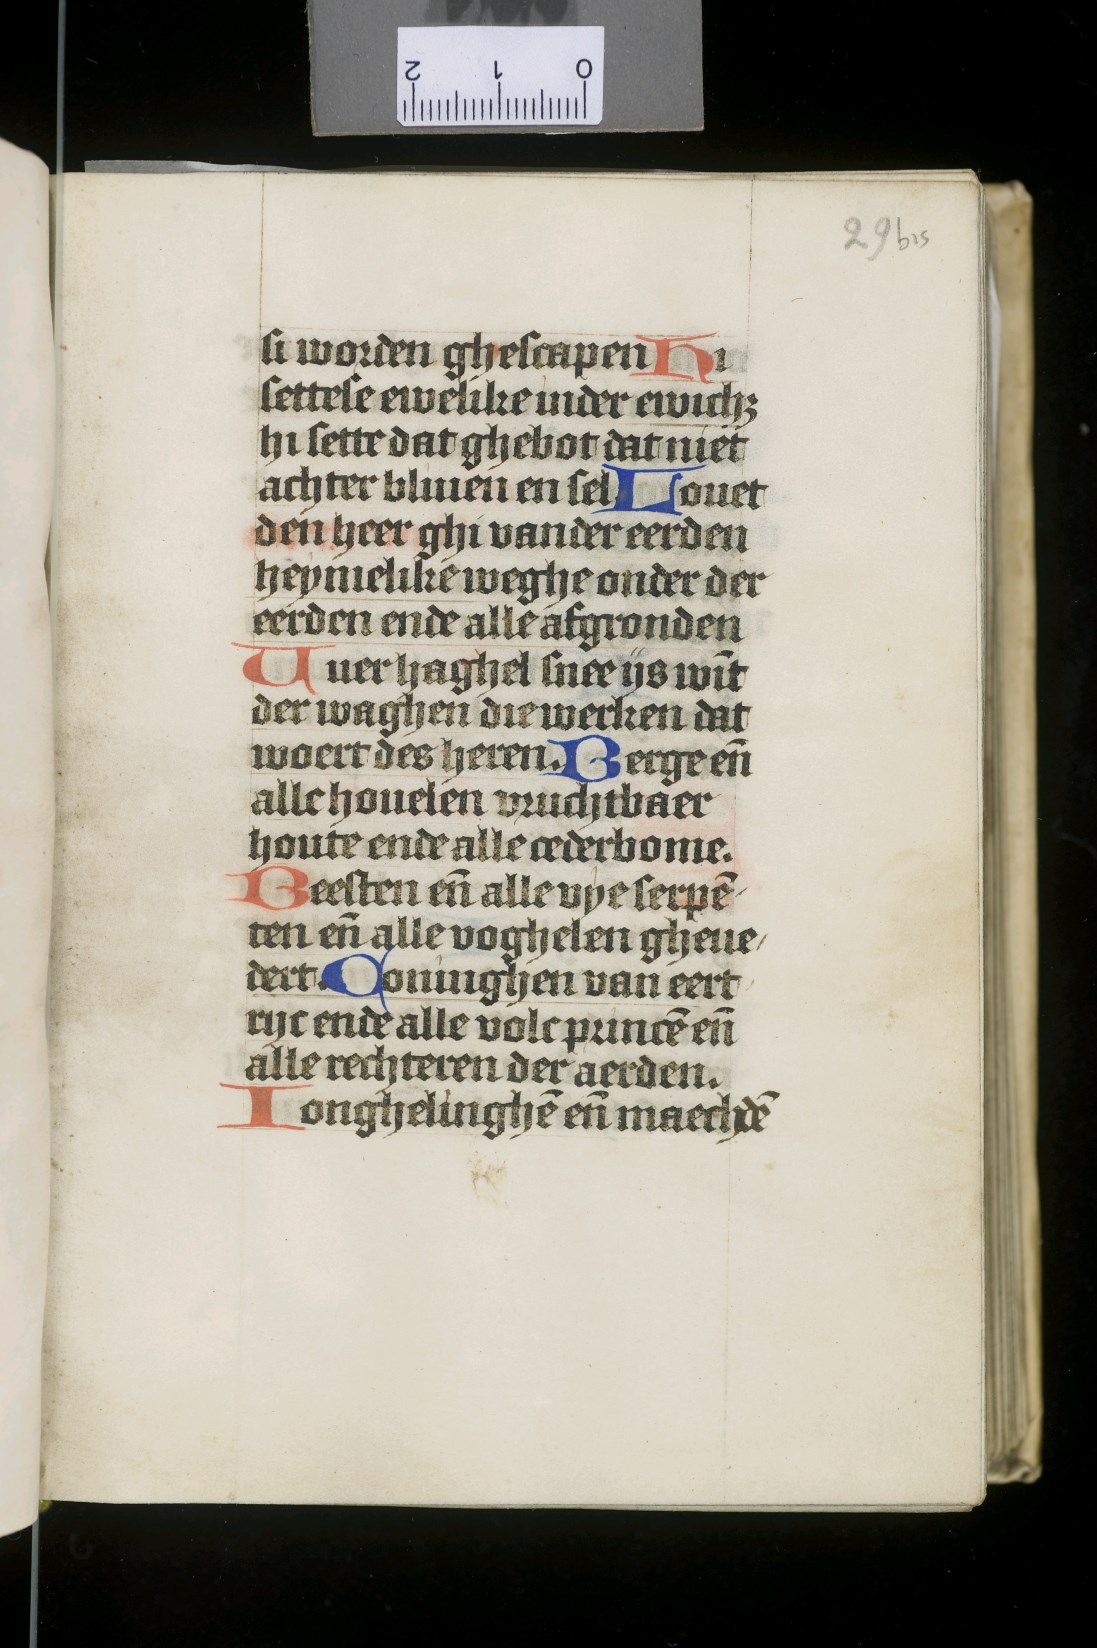 2 1 0
29 bis
si worden ghescapen Hi
settese ewelike inder ewichꝫ
hi sette dat ghebot dat niet
achter bliuen en sel Louet
den heer ghi vander eerden
heymelike weghe onder der
eerden ende alle afgronden
Vuer haghel snee ijs wīt
der waghen die werken dat
woert des heren. Berge en̄
alle houelen vruchtbaer
houte ende alle cederbome.
Beesten en̄ alle vye serpē
ten en̄ alle voghelen gheue/
dert. Coninghen van eert
rijc ende alle volc princē en̄
alle rechteren der aerden.
Ionghelinghē en̄ maechdē